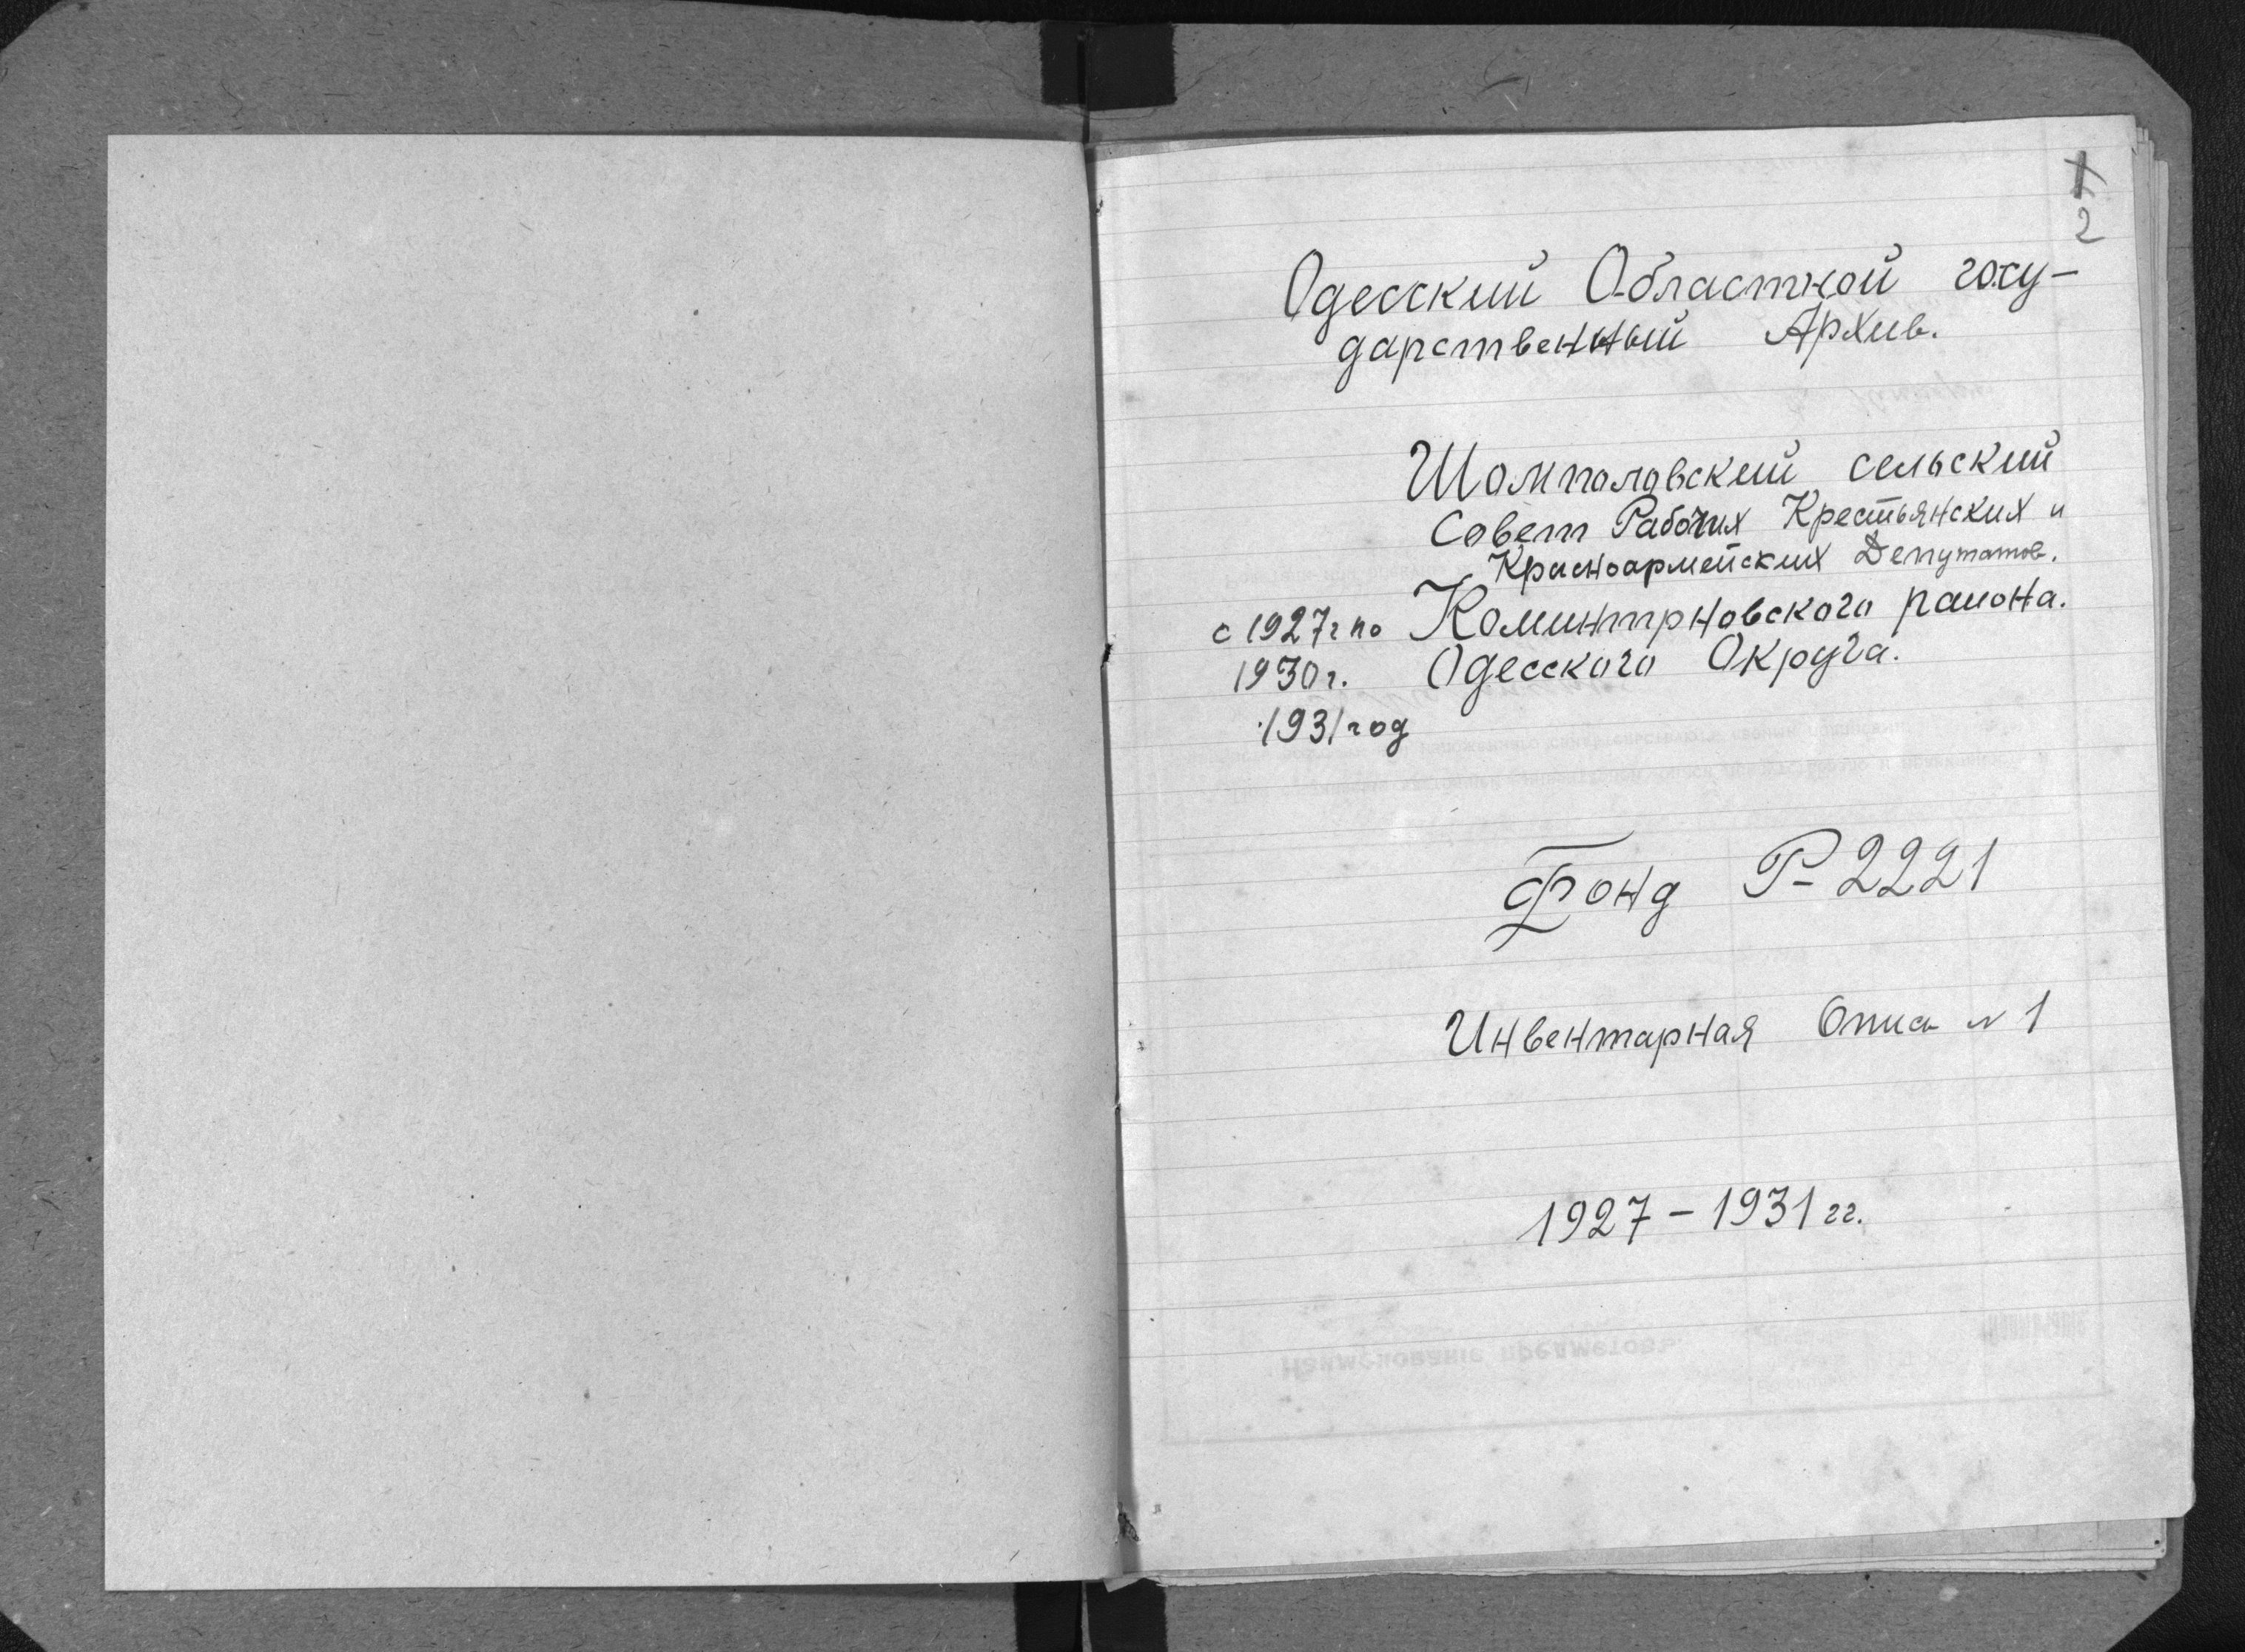 2
Одесский Областной госу-
дарственный Архив.
Шомполовский сельский
Совет Рабочих Крестьянских и
Красноармейских Депутатов.
с 1927г по Коминтрновского района.
1930г. Одесского Округа.
1931 год
Фонд Р-2221
Инвентарная Опись № 1
1927-1931 гг.
Наименованіе предметовъ.